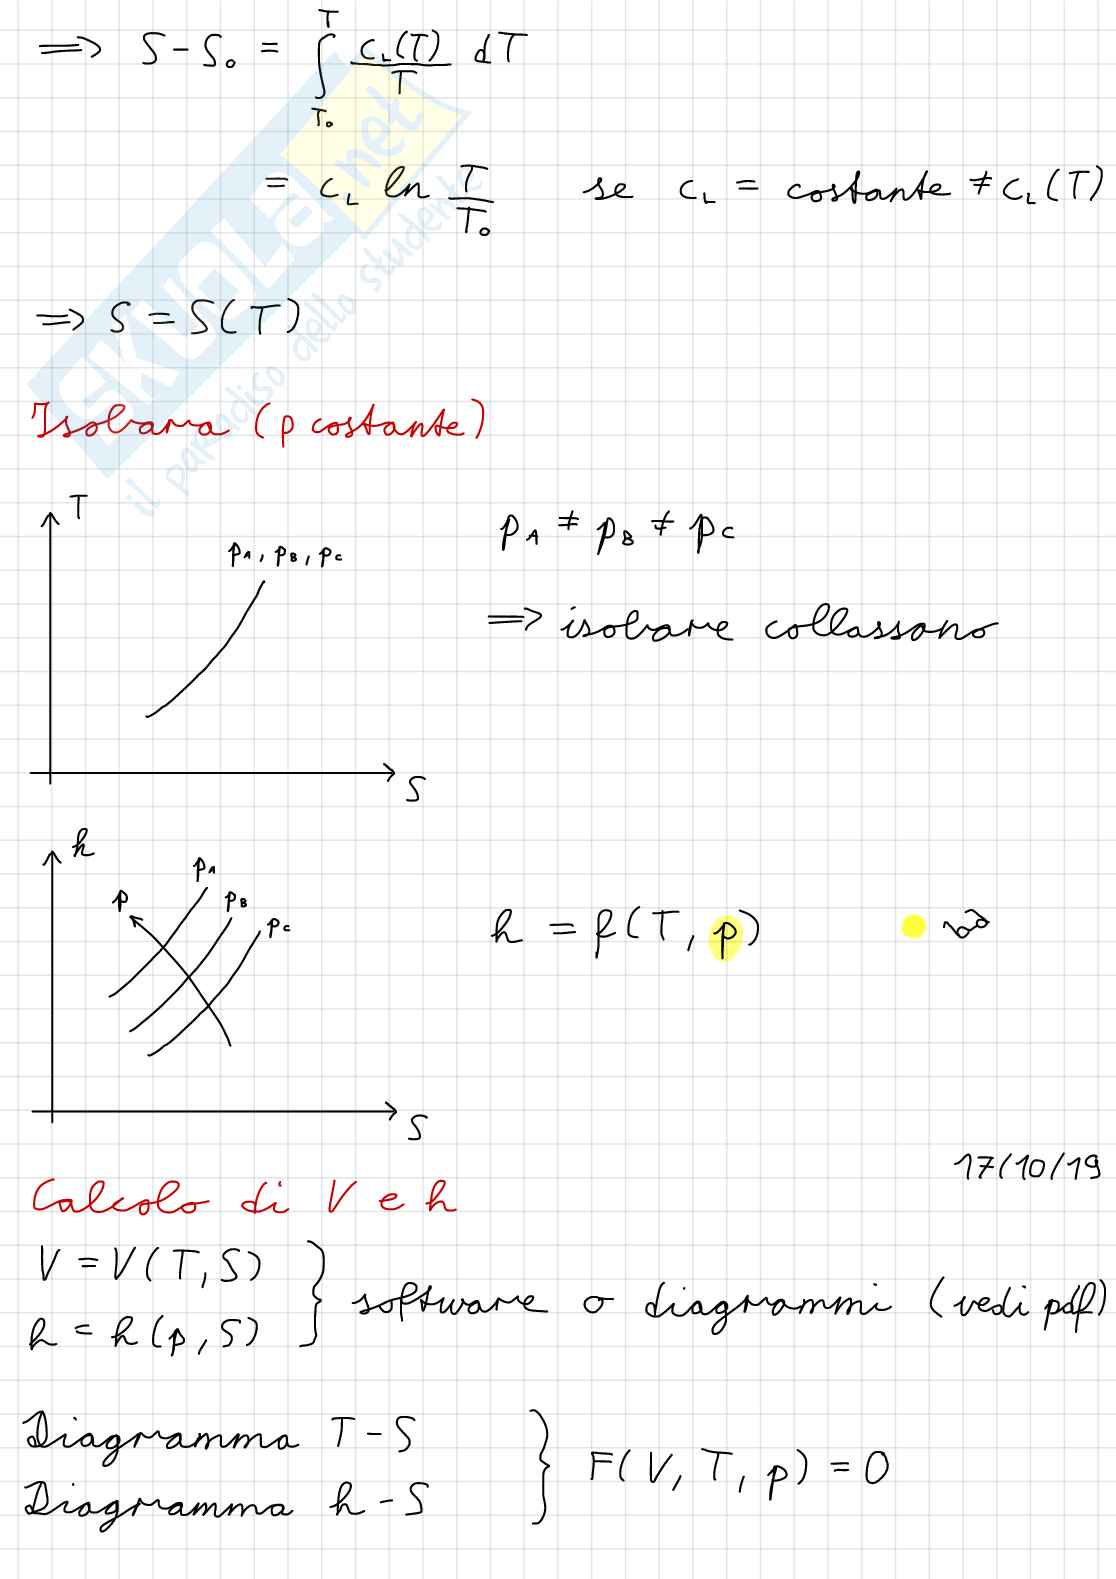 ⇒ S - S₀ = ∫_{T₀}^{T} c_L(T)/T dT
= c_L ln T/T₀ se c_L = costante ≠ c_L(T)
⇒ S = S(T)
SKUOLA.net
il paradiso dello studente
Isobara (p costante)
T
p_A, p_B, p_C
p_A ≠ p_B ≠ p_C
⇒ isobare collassano
S
h
p_A
p
p_B
p_C
h = f(T, p)
S
17/10/19
Calcolo di V e h
V = V(T, S)
h = h(p, S)
} software o diagrammi (vedi pdf)
Diagramma T-S
Diagramma h-S
} F(V, T, p) = 0